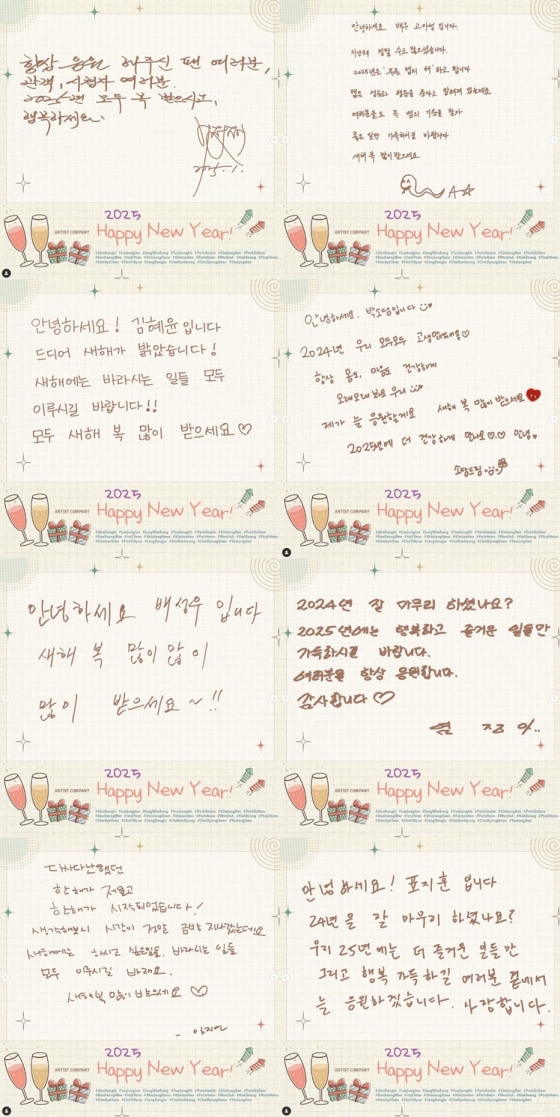 항상 응원 해주신 팬 여러분,
관객, 시청자 여러분.
2025년 모두 복 받으시고,
행복하세요.
2025. 1.
2025
ARTIST COMPANY
Happy New Year!
안녕하세요 배우 고아성 입니다.
지난해 정말 수고 많으셨습니다.
2025년은 '푸른 뱀의 해' 라고 합니다
뱀은 성장과 행운을 준다고 알려져 있는데요
여러분들도 푸른 뱀의 기운을 받아
좋은 일만 가득하시길 바랍니다
새해 복 많이 받으세요
A☆
2025
ARTIST COMPANY
Happy New Year!
안녕하세요! 김혜윤입니다
드디어 새해가 밝았습니다!
새해에는 바라시는 일들 모두
이루시길 바랍니다!!
모두 새해 복 많이 받으세요♡
2025
ARTIST COMPANY
Happy New Year!
안녕하세요. 박소담입니다
2024년 우리 모두모두 고생많았어요♡
항상 몸도, 마음도 건강하게
오래오래 보아요 우리
제가 늘 응원할게요 새해 복 많이 받으세요
2025년에 더 건강하게 만나요♡♡ 안녕.
소담드림
2025
ARTIST COMPANY
Happy New Year!
안녕하세요 배성우 입니다
새해 복 많이 많이
많이 받으세요~!!
2025
ARTIST COMPANY
Happy New Year!
2024년 잘 마무리 하셨나요?
2025년에는 행복하고 즐거운 일들만
가득하시길 바랍니다.
여러분을 항상 응원합니다.
감사합니다♡
염 정 아..
2025
ARTIST COMPANY
Happy New Year!
다사다난했던
한해가 저물고
한해가 시작되었습니다!
생각해보니 시간이 정말 금방 지나갔는데요
새해에는 하시고 싶은일들, 바라시는 일들
모두 이루시길 바래요.
새해복 많이 받으세요 ♡
- 임지연
2025
ARTIST COMPANY
Happy New Year!
안녕하세요! 표지훈 입니다
24년을 잘 마무리 하셨나요?
우리 25년에는 더 즐거운 일들만
그리고 행복 가득하길 여러분 곁에서
늘 응원하겠습니다. 사랑합니다.
2025
ARTIST COMPANY
Happy New Year!